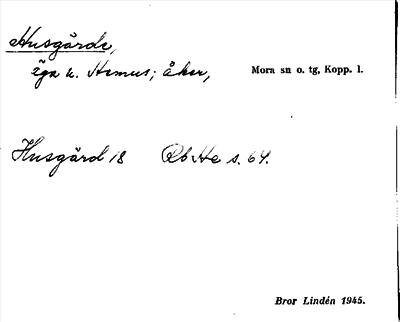 Husgårde,
äga u. Hemus; åker, Mora sn o. tg, Kopp. l.
Husgård 18 Rb He s. 64.
Bror Lindén 1945.